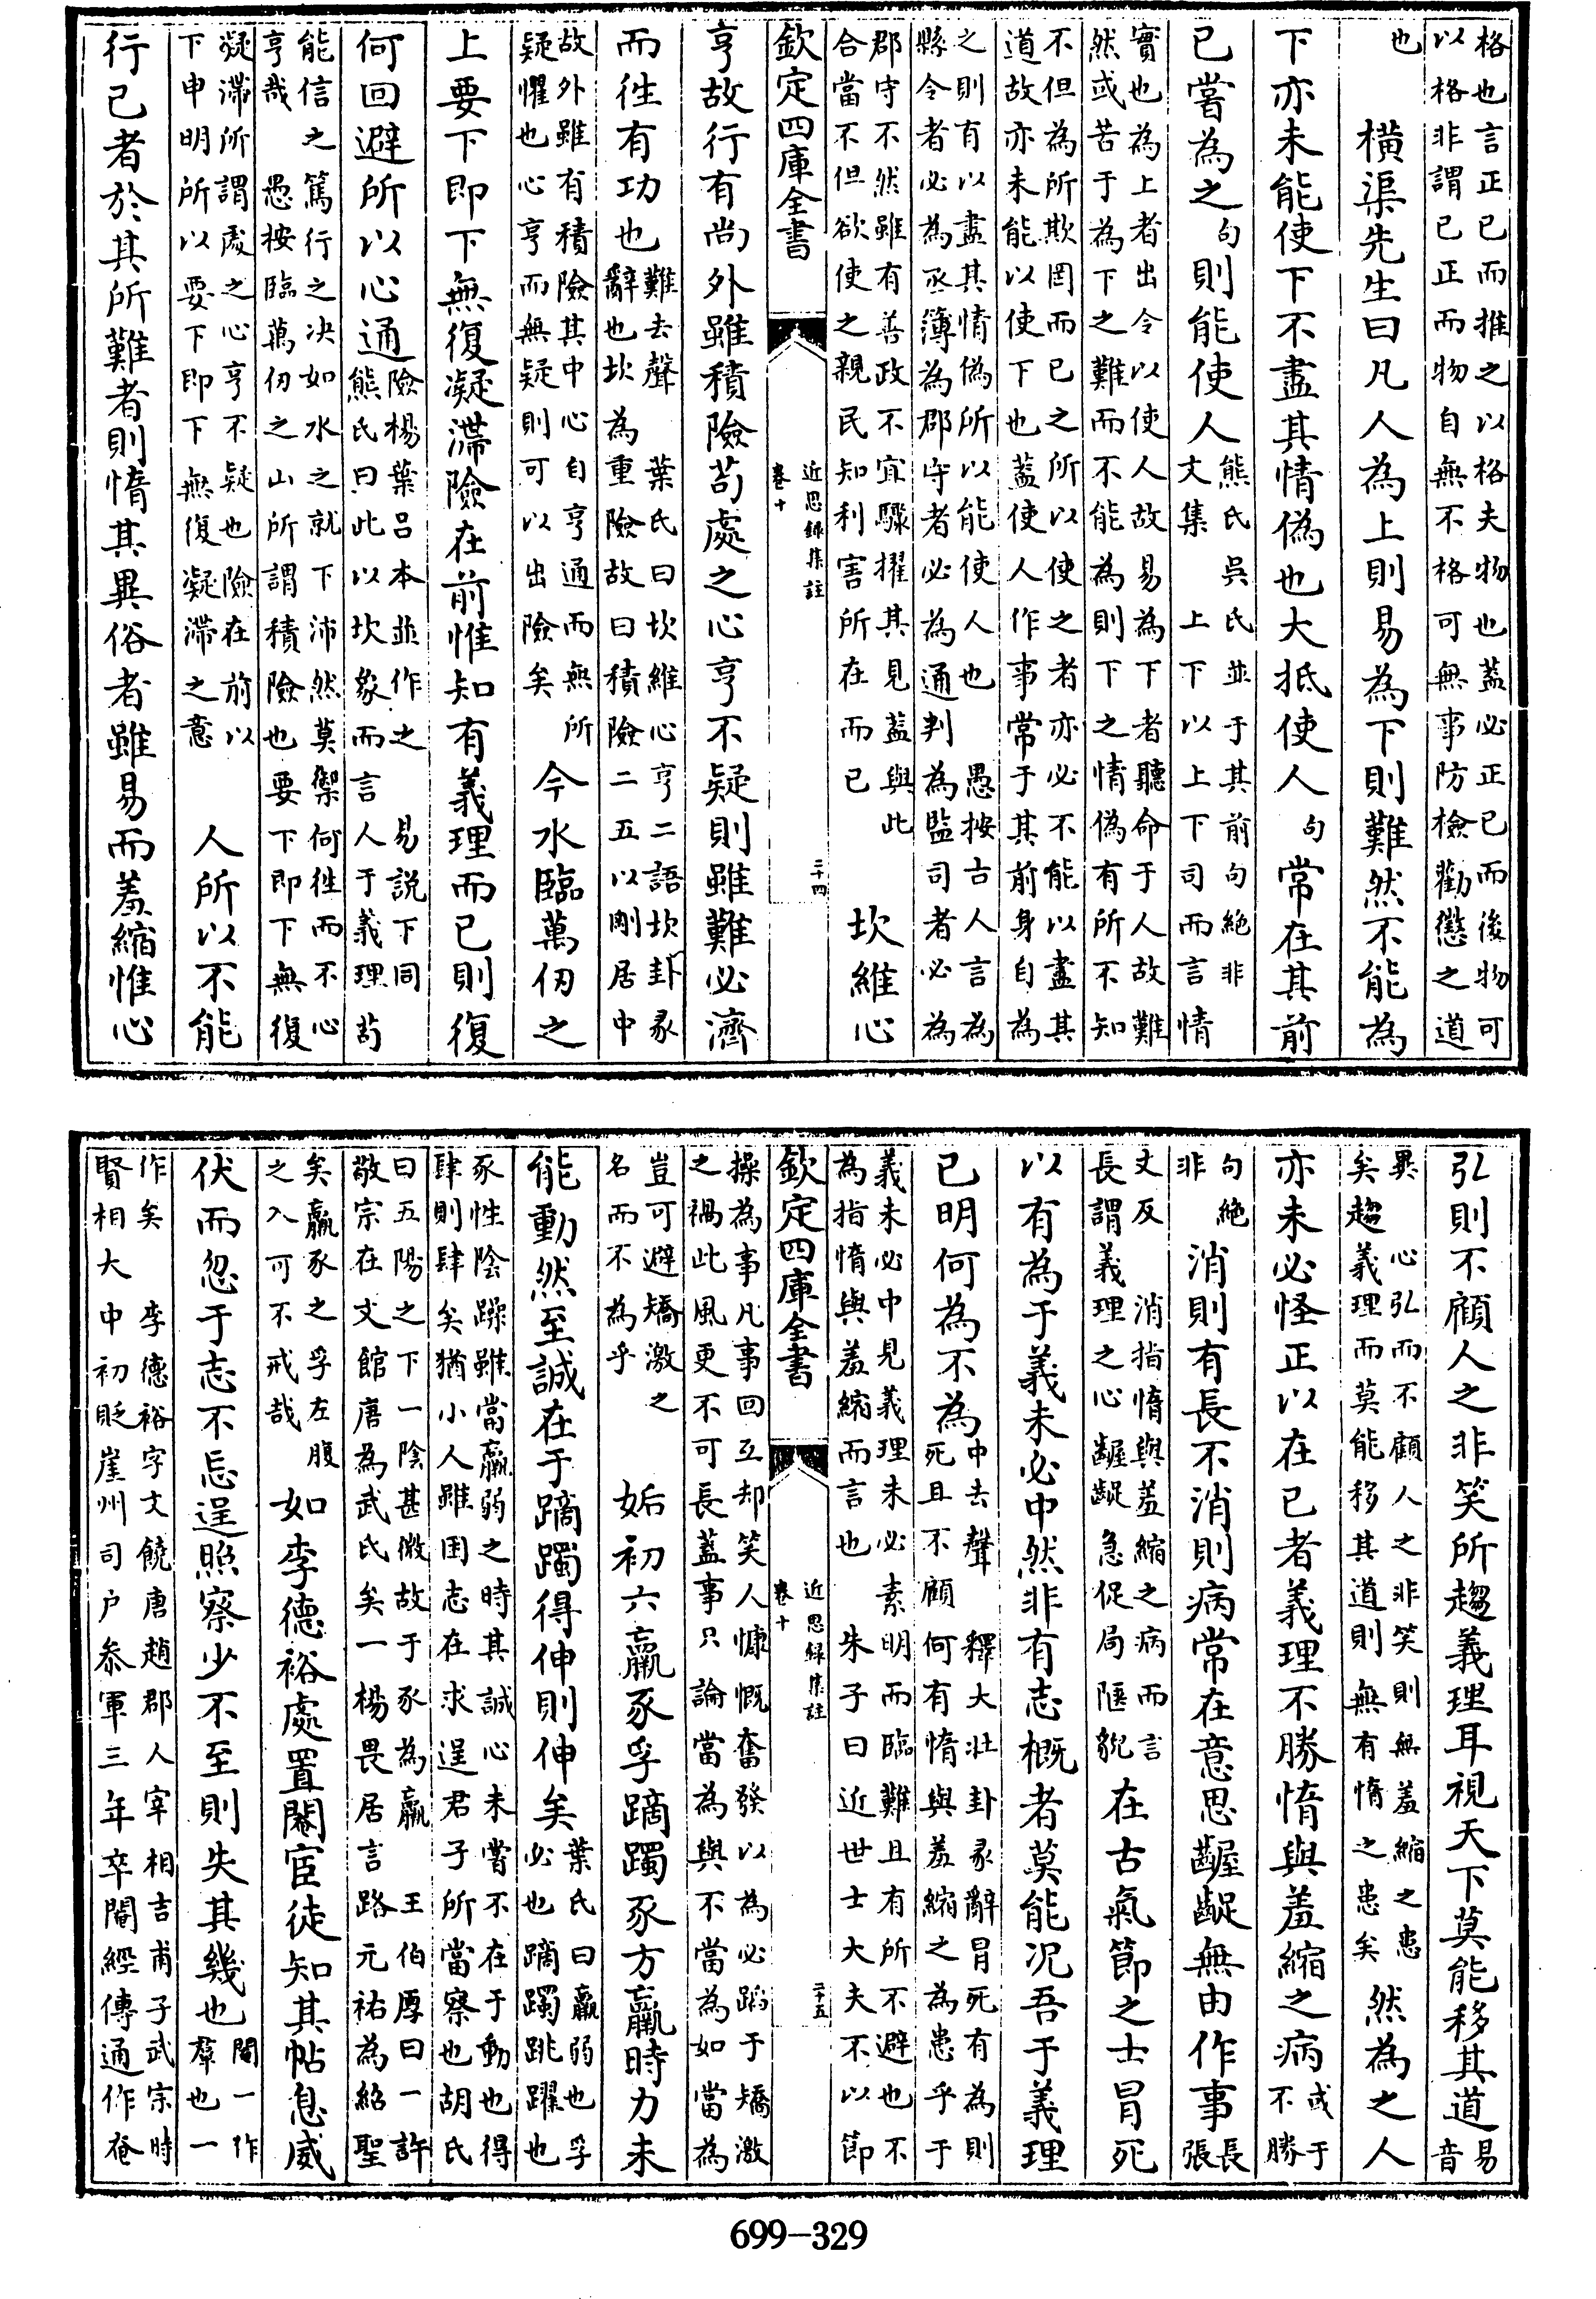 格也言正己而推之以格夫物也蓋必正己而後物可
以格非謂己正而物自無不格可無事防檢勸懲之道
也　橫渠先生曰凡人為上則易為下則難然不能為
下亦未能使下不盡其情偽也大抵使人句常在其前
已嘗為之句則能使人熊氏吳氏並于其前句絕非
文集　上下以上下司而言情
實也為上者出令以使人故易為下者聽命于人故難
然或苦于為下之難而不能為則下之情偽有所不知
不但為所欺罔而已之所以使之者亦必不能以盡其
道故亦未能以使下也蓋使人作事常于其前身自為
之則有以盡其情偽所以能使人也　愚按古人言為
縣令者必為丞簿為郡守者必為通判為監司者必為
郡守不然雖有善政不宜驟擢其見蓋與此
合當不但欲使之親民知利害所在而已　坎維心
欽定四庫全書　近思錄集註
卷十　三十四
亨故行有尚外雖積險苟處之心亨不疑則雖難必濟
而徃有功也難去聲　葉氏曰坎維心亨二語坎卦彖
辭也坎為重險故曰積險二五以剛居中
故外雖有積險其中心自亨通而無所
疑懼也心亨而無疑則可以出險矣　今水臨萬仞之
上要下即下無復凝滯險在前惟知有義理而已則復
何回避所以心通險楊葉呂本並作之　易說下同
熊氏曰此以坎象而言人于義理苟
能信之篤行之决如水之就下沛然莫禦何徃而不心
亨哉　愚按臨萬仞之山所謂積險也要下即下無復
凝滯所謂處之心亨不疑也險在前以
下申明所以要下即下無復凝滯之意　人所以不能
行己者於其所難者則惰其異俗者雖易而羞縮惟心
弘則不顧人之非笑所趨義理耳視天下莫能移其道易
音
異　心弘而不顧人之非笑則無羞縮之患
矣趨義理而莫能移其道則無有惰之患矣　然為之人
亦未必怪正以在己者義理不勝惰與羞縮之病或于
不勝
句絕
非　消則有長不消則病常在意思齷齪無由作事長
張
丈反　消指惰與羞縮之病而言
長謂義理之心齷齪急促局陿貌　在古氣節之士冒死
以有為于義未必中然非有志概者莫能况吾于義理
已明何為不為中去聲　釋大壯卦彖辭冒死有為則
死且不顧何有惰與羞縮之為患乎于
義未必中見義理未必素明而臨難且有所不避也不
為指惰與羞縮而言也　朱子曰近世士大夫不以節
欽定四庫全書　近思錄集註
卷十　三十五
操為事凡事回互却笑人慷慨奮發以為必蹈于矯激
之禍此風更不可長蓋事只論當為與不當為如當為
豈可避矯激之
名而不為乎　姤初六羸豕孚蹢躅豕方羸時力未
能動然至誠在于蹢躅得伸則伸矣葉氏曰羸弱也孚
必也蹢躅跳躍也
豕性陰躁雖當羸弱之時其誠心未嘗不在于動也得
肆則肆矣猶小人雖困志在求逞君子所當察也胡氏
曰五陽之下一陰甚微故于豕為羸　王伯厚曰一許
敬宗在文館唐為武氏矣一楊畏居言路元祐為紹聖
矣羸豕之孚左腹
之入可不戒哉　如李德裕處置閹宦徒知其帖息威
伏而忽于志不忘逞照察少不至則失其幾也閹一作
羣也一
作矣　李德裕字文饒唐趙郡人宰相吉甫子武宗時
賢相大中初貶崖州司户叅軍三年卒閹經傳通作奄
699-329